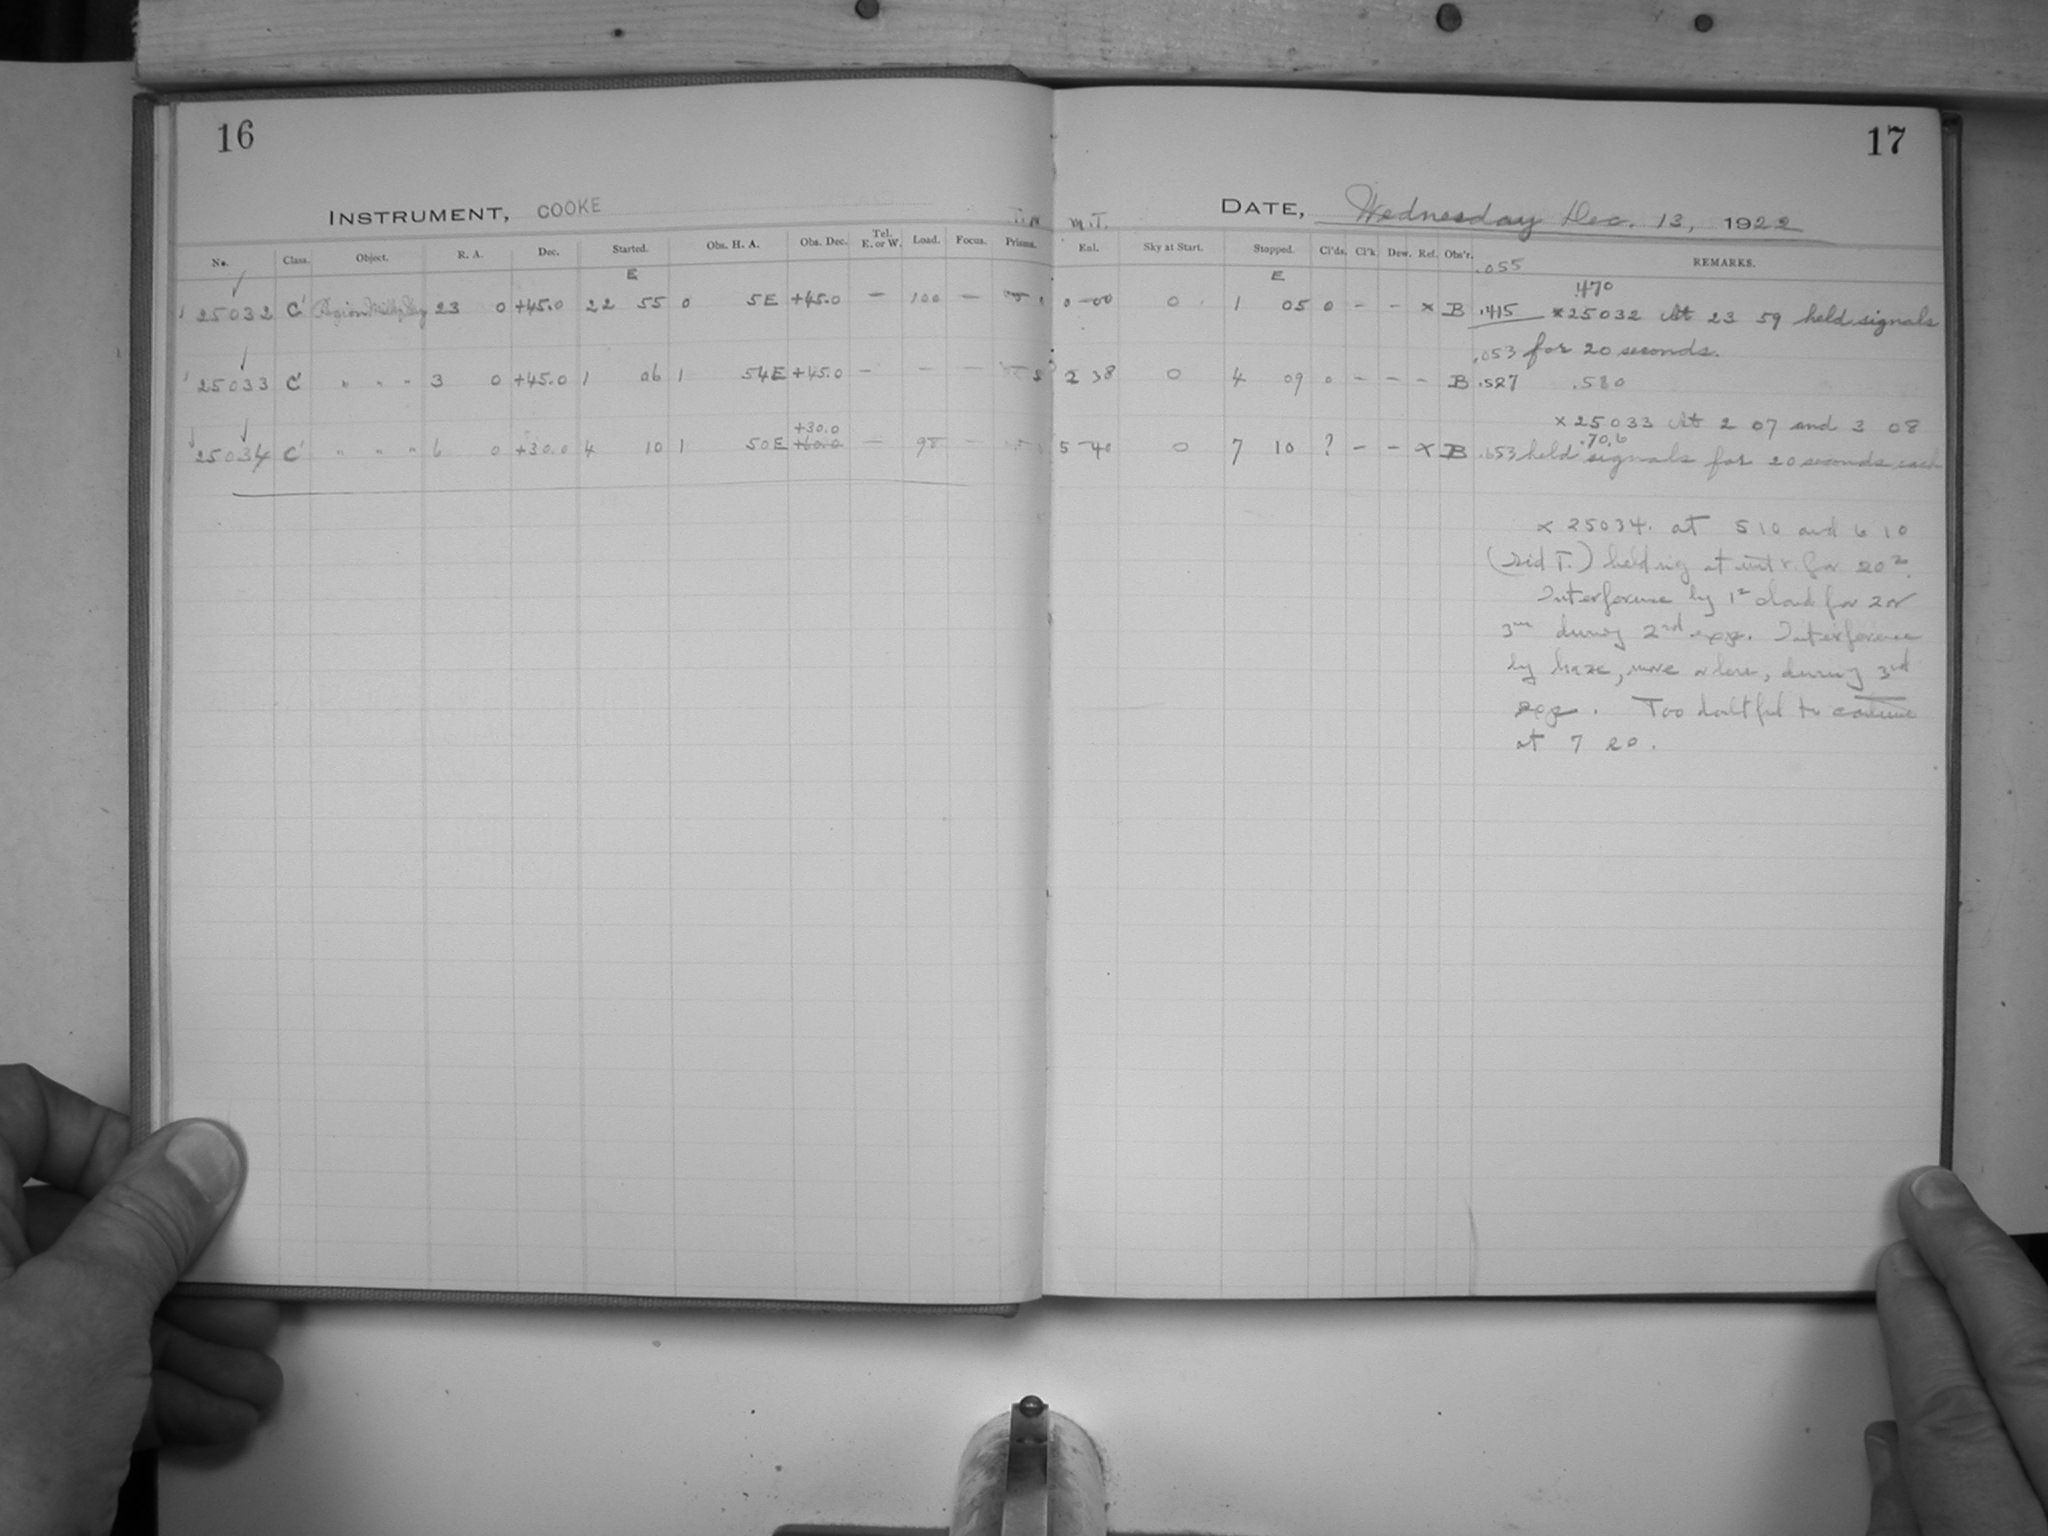 16
17
INSTRUMENT, COOKE
DATE, Wednesday Dec. 13, 1922
M.T.
No. Class. Object. R. A. Dec. Started. Obs. H. A. Obs. Dec. Tel. E. or W. Load. Focus. Prisms. Eal. Sky at Start. Stopped. Cl'ds. Cl'k Dew. Ref. Obs'r. REMARKS.
.055
E E
.470
25032 C' Region Milky Way 23 0 +45.0 22 55 0 5E +45.0 — 100 — 0-00 0 1 05 0 - - x B .415 x25032 At 23 59 held signals
.053 for 20 seconds.
25033 C' " " " 3 0 +45.0 1 06 1 54E +45.0 — — — 2 38 0 4 09 0 - - - B .527 .580
x 25033 At 2 07 and 3 08
+30.0 .706
25034 C' " " " 6 0 +30.0 4 10 1 50E +60.0 — 98 — 5-40 0 7 10 ? - - x B .653 held signals for 20 seconds each
x 25034. at 5 10 and 6 10
(Sid T.) holding at for 20
Interference by cloud for 2 or
3m during 2nd exp. Interference
by haze, more or less, during 3rd
exp. Too doubtful to continue
at 7 20.